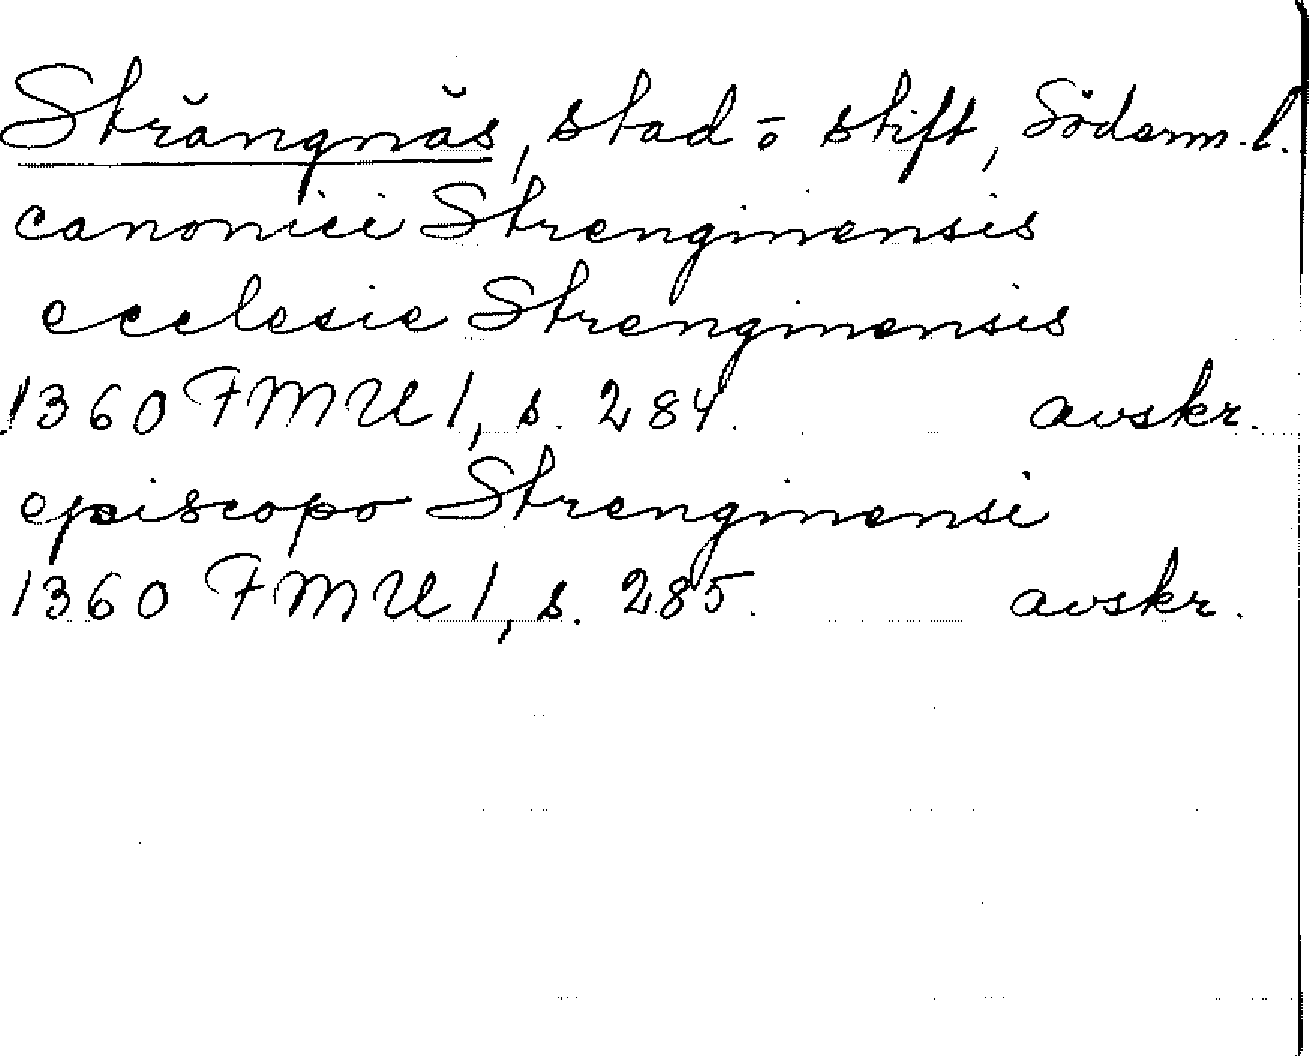 Strängnäs, stad o stift, Söderm. l.
canonici Strenginensis
ecclesie Strenginensis
1360 FMU 1, s. 284. avskr.
episcopo Strenginensi
1360 FMU 1, s. 285. avskr.